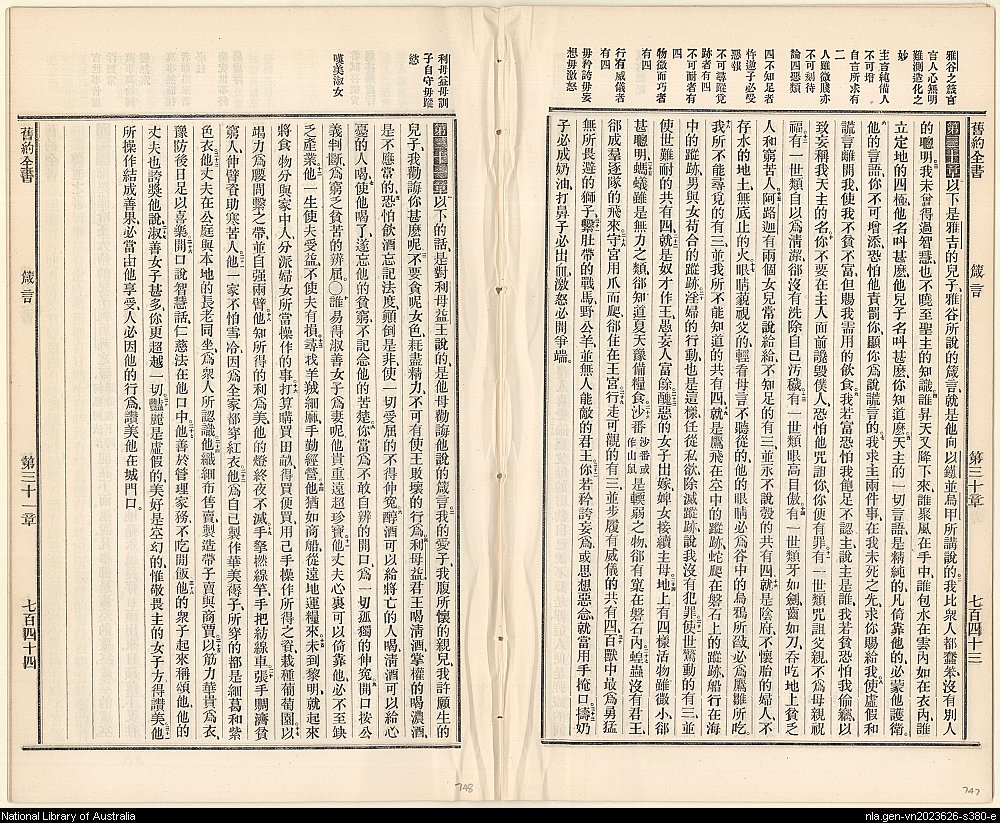 舊約全書
箴言
第三十章
七百四十三
雅谷之箴言
言人心無明
難測造化之
妙
主言純備人
不可增
自言所求有
二
人雖微賤亦
不可刻待
論四惡類
四不知足者
忤逆子必受
惡報
不可尋覓蹤
跡者有四
不可耐者有
四
物微而巧者
有四
行有威儀者
有四
毋矜誇毋妄
想毋激怒
第三十章以下是雅吉的兒子、雅谷所說的箴言、就是他向以鐵並烏甲所講說的、我比衆人都蠢笨、沒有別人
的聰明、我未曾得過智慧、也不曉至聖主的知識、誰昇天又降下來、誰聚風在手中、誰包水在雲內、如在衣內、誰
立定地的四極、他名叫甚麽、他兒子名叫甚麽、你知道麽、天主的一切言語、是精純的、凡倚靠他的、必蒙他護衛、
他的言語、你不可增添、恐怕他責罰你、顯你爲說謊言的、我求主兩件事、在我未死之先、求你賜給我、使虛假和
謊言離開我、使我不貧不富、但賜我需用的飲食、我若富、恐怕我飽足不認主、說主是誰、我若貧、恐怕我偷竊、以
致妄稱我天主的名、你不要在主人面前讒毀僕人、恐怕他咒詛你、你便有罪、有一世類咒詛父親、不爲母親祝
福、有一世類自以爲清潔、郤沒有洗除自已汚穢、有一世類眼高目傲、有一世類牙如劍、齒如刀、吞吃地上貧乏
人和窮苦人、阿路迦有兩個女兒、常說給給、不知足的有三、並永不說彀的共有四、就是陰府、不壞胎的婦人、不
存水的地土、無底止的火、眼睛藐視父的、輕看母言不聽從的、他的眼睛必爲谷中的烏鴉所啄、必爲鷹雛所吃、
我所不能尋覓的有三、並我所不能知道的共有四、就是鷹飛在空中的蹤跡、蛇爬在磐石上的蹤跡、船行在海
中的蹤跡、男與女苟合的蹤跡、淫婦的行動也是這樣、任從私欲、除滅蹤跡、說我沒有犯罪、使世驚動的有三、並
使世難耐的共有四、就是奴才作王、愚妄人富餘、醜惡的女子出嫁、婢女接續主母、地上有四樣活物、雖微小、郤
甚聰明、螞蟻雖是無力之類、郤知道夏天豫備糧食、沙番沙番或作山鼠是輭弱之物、郤有窠在磐石內、蝗蟲沒有君王、
郤成羣逐隊的飛來、守宮用爪而爬、郤住在王宮、行走可觀的有三、並步履有威儀的共有四、百獸中最爲勇猛
無所畏避的獅子、繫肚帶的戰馬、野公羊、並無人能敵的君王、你若矜誇妄爲、或思想惡念、就當用手掩口、擣奶
子必成奶油、打鼻子必出血、激怒必開爭端。
利母益母訓
子自守毋蹤
慾
嘆美淑女
第三十一章以下的話、是對利母益王說的、是他母勸誨他說的箴言、我的愛子、我腹所懷的親兒、我許願生的
兒子、我勸誨你甚麽呢、不要貪呢女色、秏盡精力、不可有使王敗壞的行爲、利母益、君王喝清酒、掌權的喝濃酒、
是不應當的、恐怕飲酒忘記法度、顚倒是非、使一切受屈的不得伸寃、醇酒可以給將亡的人喝、清酒可以給心
憂的人喝、使他喝了、遂忘他的貧窮、不記念他的苦楚、你當爲不敢自辨的開口、爲一切孤獨的伸寃、開口按公
義判斷、爲窮乏貧苦的辨屈、〇誰易得淑善女子爲妻呢、他貴重遠超珍寶、他丈夫心裏可以倚靠他、必不至缺
乏產業、他一生使夫受益、不使夫有損、尋找羊羢細麻、手勤經營、他猶如商船、從遠地運糧來、未到黎明就起來
將食物分與家中人、分派婦女所當操作的事、打算購買田畝、得買便買、用己手操作所得之資、栽種葡萄園、以
竭力爲腰間繫之帶、並自强兩臂、他知所得的利爲美、他的燈終夜不滅、手拏撚線竿、手把紡線車、張手賙濟貧
窮人、伸臂資助寒苦人、他一家不怕雪冷、因爲全家都穿紅衣、他爲自已製作華美褥子、所穿的都是細葛和紫
色衣、他丈夫在公庭與本地的長老同坐、爲衆人所認識、他織細布售賣、製造帶子賣與商賈、以筋力華貴爲衣、
豫防後日、足以喜樂、開口說智慧話、仁慈法在他口中、他善於管理家務、不吃閒飯、他的衆子起來稱頌他、他的
丈夫也誇獎他、說淑善女子甚多、你更超越一切、豔麗是虛假的、美好是空幻的、惟敬畏主的女子方得讚美、他
所操作、結成善果、必當由他享受、人必因他的行爲、讚美他在城門口。
舊約全書
箴言
第三十一章
七百四十四
748
747
National Library of Australia
nla.gen-vn2023626-s380-e